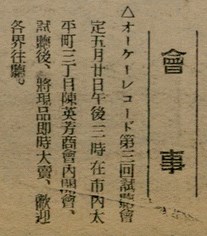 會事
△オーケーレコード第三回試聽會
定五月廿日午後二時在市內太
平町三丁目陳英芳商會內開會、
試聽後、將現品卽時大賣、歡迎
各界往聽、